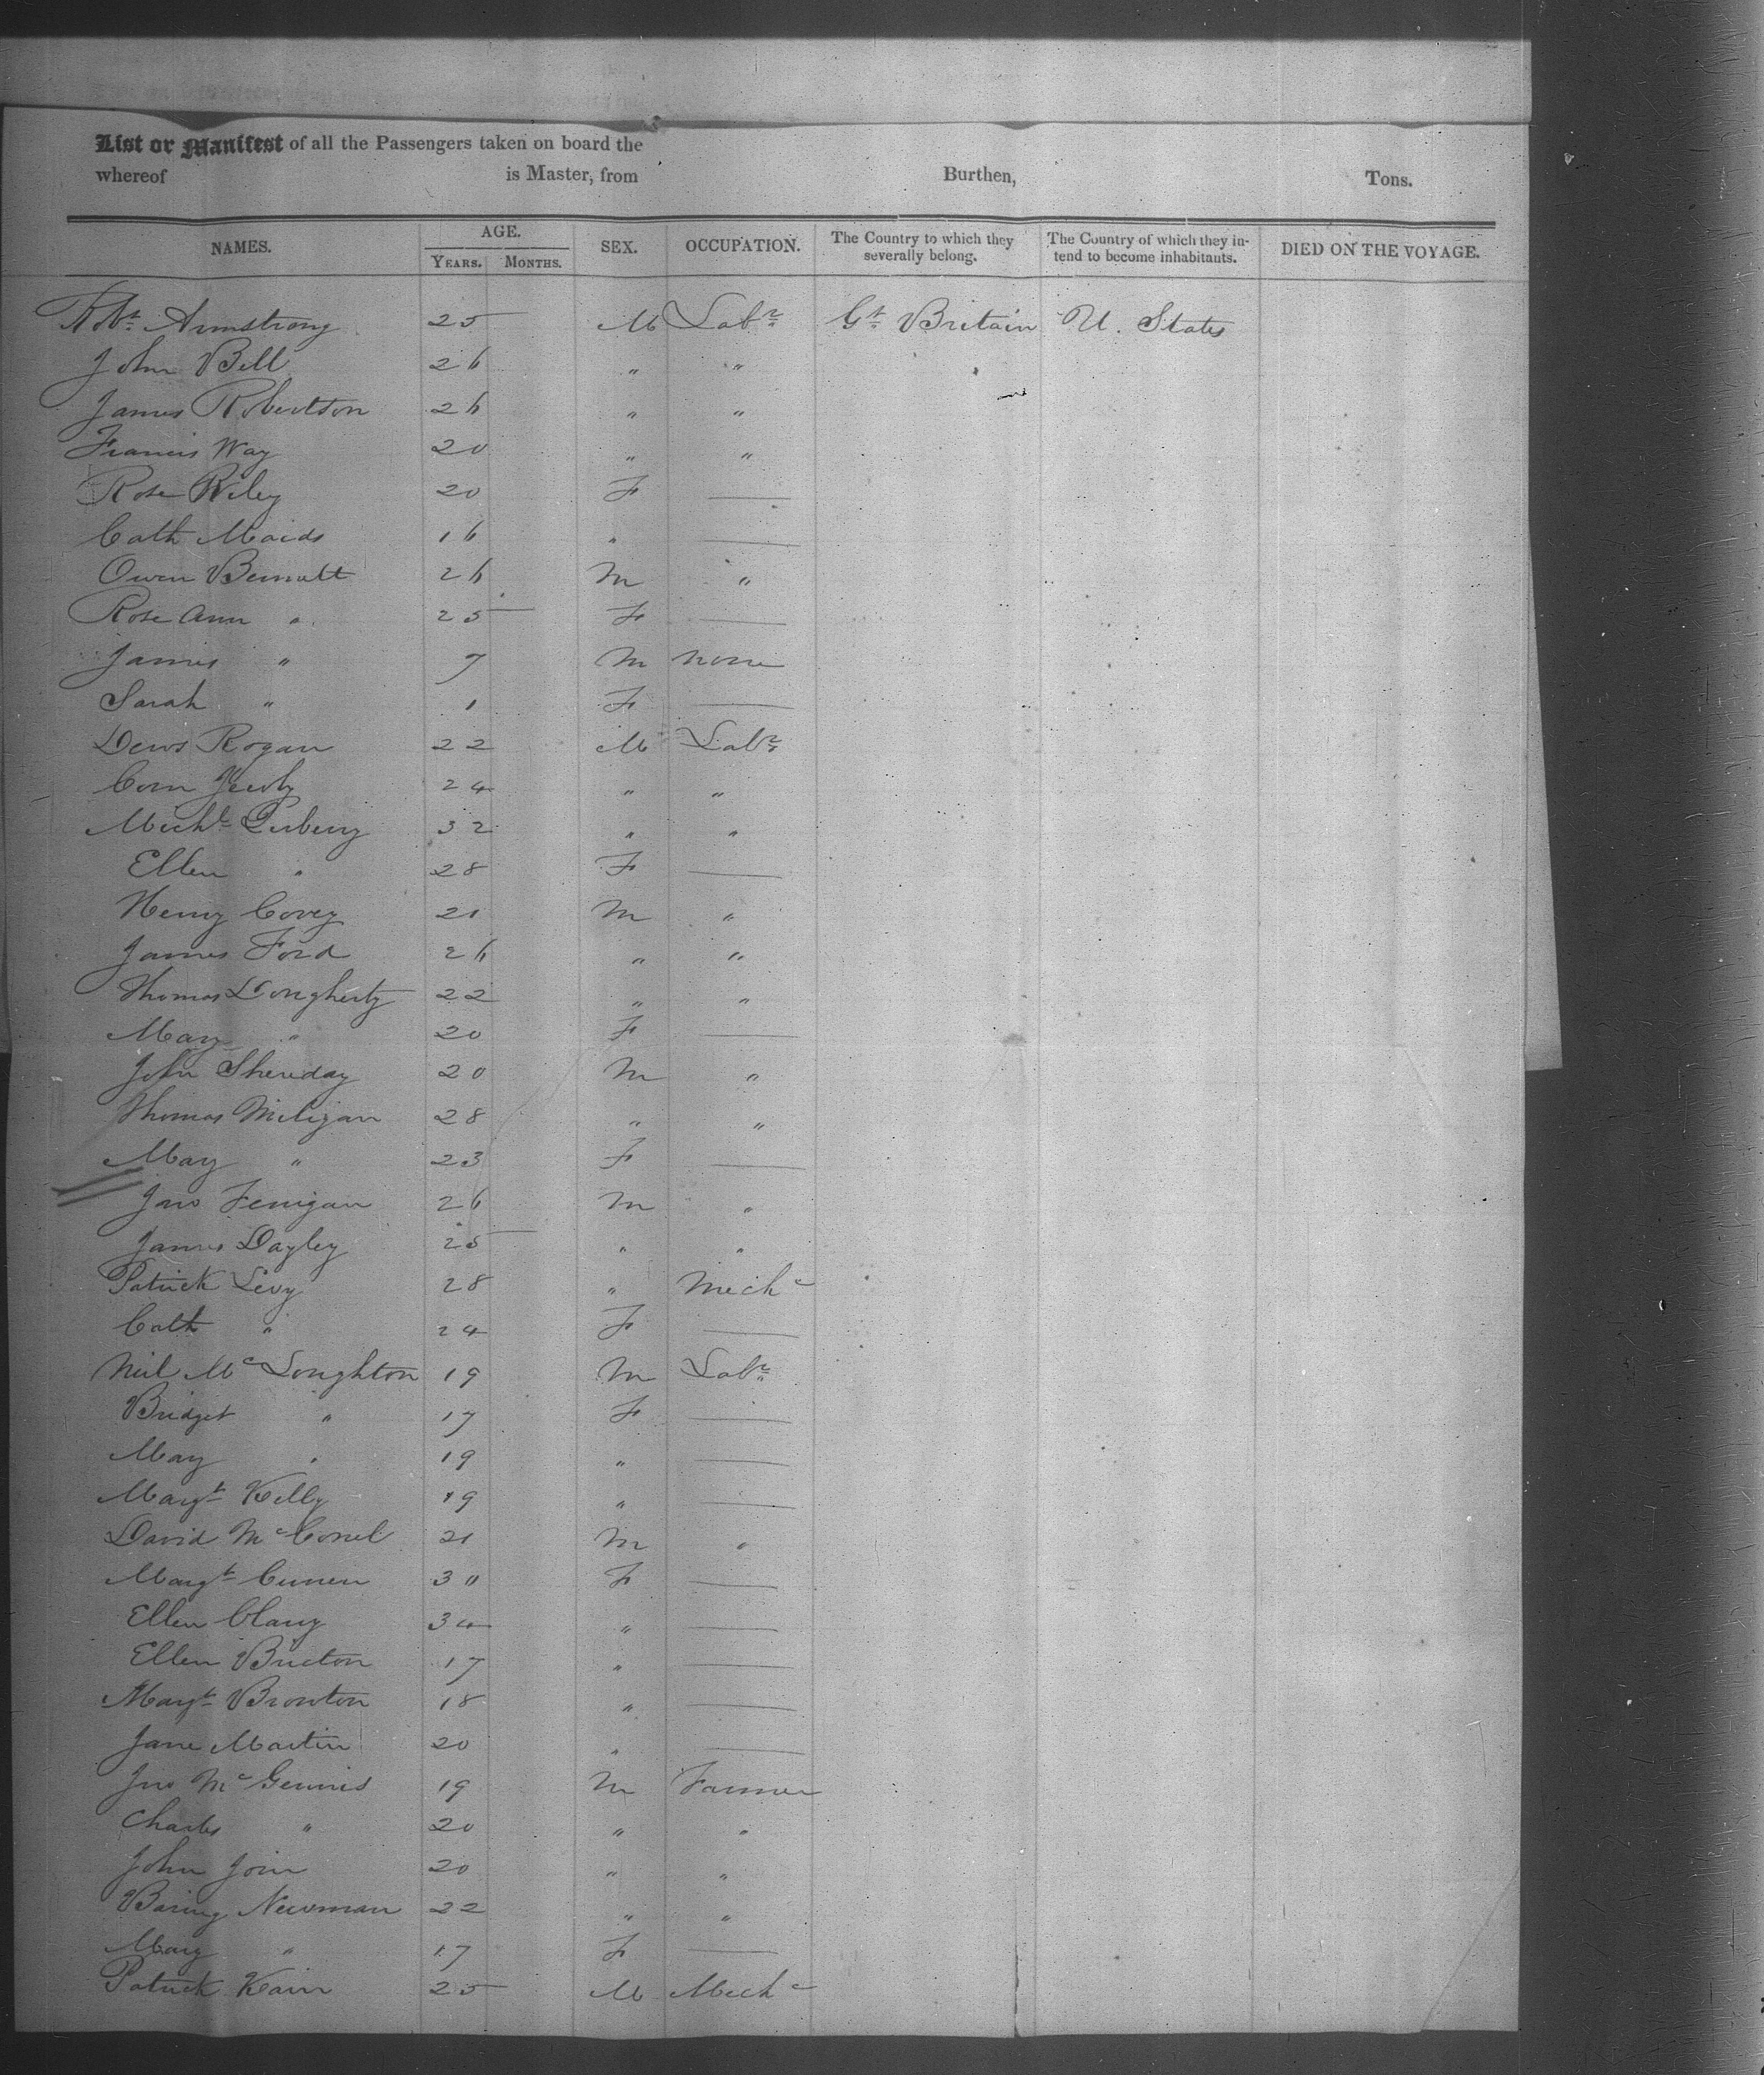 List or Manifest of all the Passengers taken on board the
whereof is Master, from Burthen, Tons.
NAMES. AGE. YEARS. MONTHS. SEX. OCCUPATION. The Country to which they severally belong. The Country of which they intend to become inhabitants. DIED ON THE VOYAGE.
Robt. Armstrong 25 M Labr. Gt. Britain U. States
John Bell 26 " "
James Robertson 26 " "
Francis Way 20 " "
Rose Riley 20 F —
Cath Maids 16 " —
Owen Bennatt 26 M "
Rose Ann " 25 F —
James " 7 M none
Sarah " 1 F —
Dens Rogan 22 M Labr.
Corn 24 " "
Michl. 32 " "
Ellen " 28 F —
Henry Covey 21 M "
James Ford 26 " "
Thomas Dougherty 22 " "
Mary " 20 F —
John Sheriday 20 M "
Thomas Miligan 28 " "
Mary " 23 F —
Jno Fenigan 26 M "
James Dayley 25 " "
Patrick Levy 28 " Mechc
Cath " 24 F —
Neil McLoughton 19 M Labr.
Bridget " 17 F —
Mary " 19 " —
Margt. Kelly 19 " —
David McConel 21 M "
Margt. Cunen 30 F —
Ellen Clany 34 " —
Ellen Bricton 17 " —
Margt. Browton 18 " —
Jane Martin 20 " —
Jno McGennis 19 M Farmer
Charles " 20 " "
John Join 20 " "
Baring Newman 22 " "
Mary " 17 F —
Patrick Kain 25 M Mechc